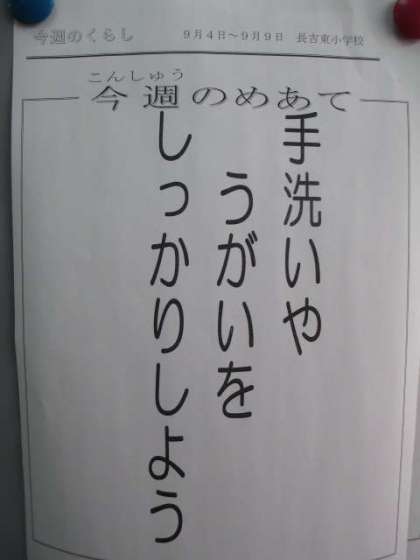 今週のくらし　9月4日～9月9日　長吉東小学校
こんしゅう
今週のめあて
手洗いや
うがいを
しっかりしよう